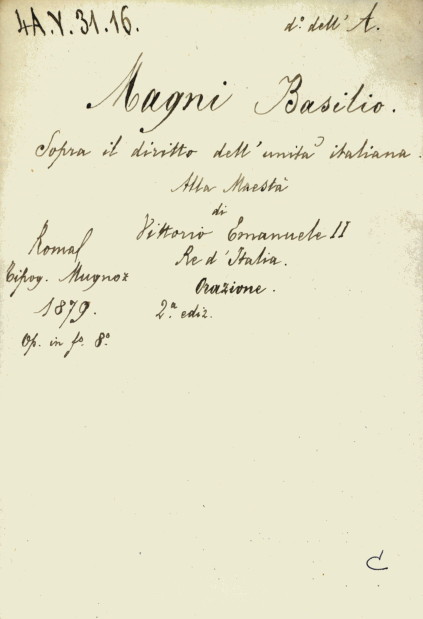 4A.Y.31.16.
d.º dell' A.
Magni Basilio.
Sopra il diritto dell'unità italiana.
Alla Maestà
di
Vittorio Emanuele II
Re d'Italia.
Orazione.
2.ª ediz.
Roma
Tipog. Mugnoz
1879.
Op. in fº. 8º
C